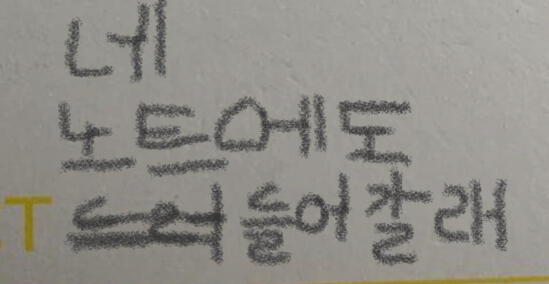 네
노트에도
들어갈래
T